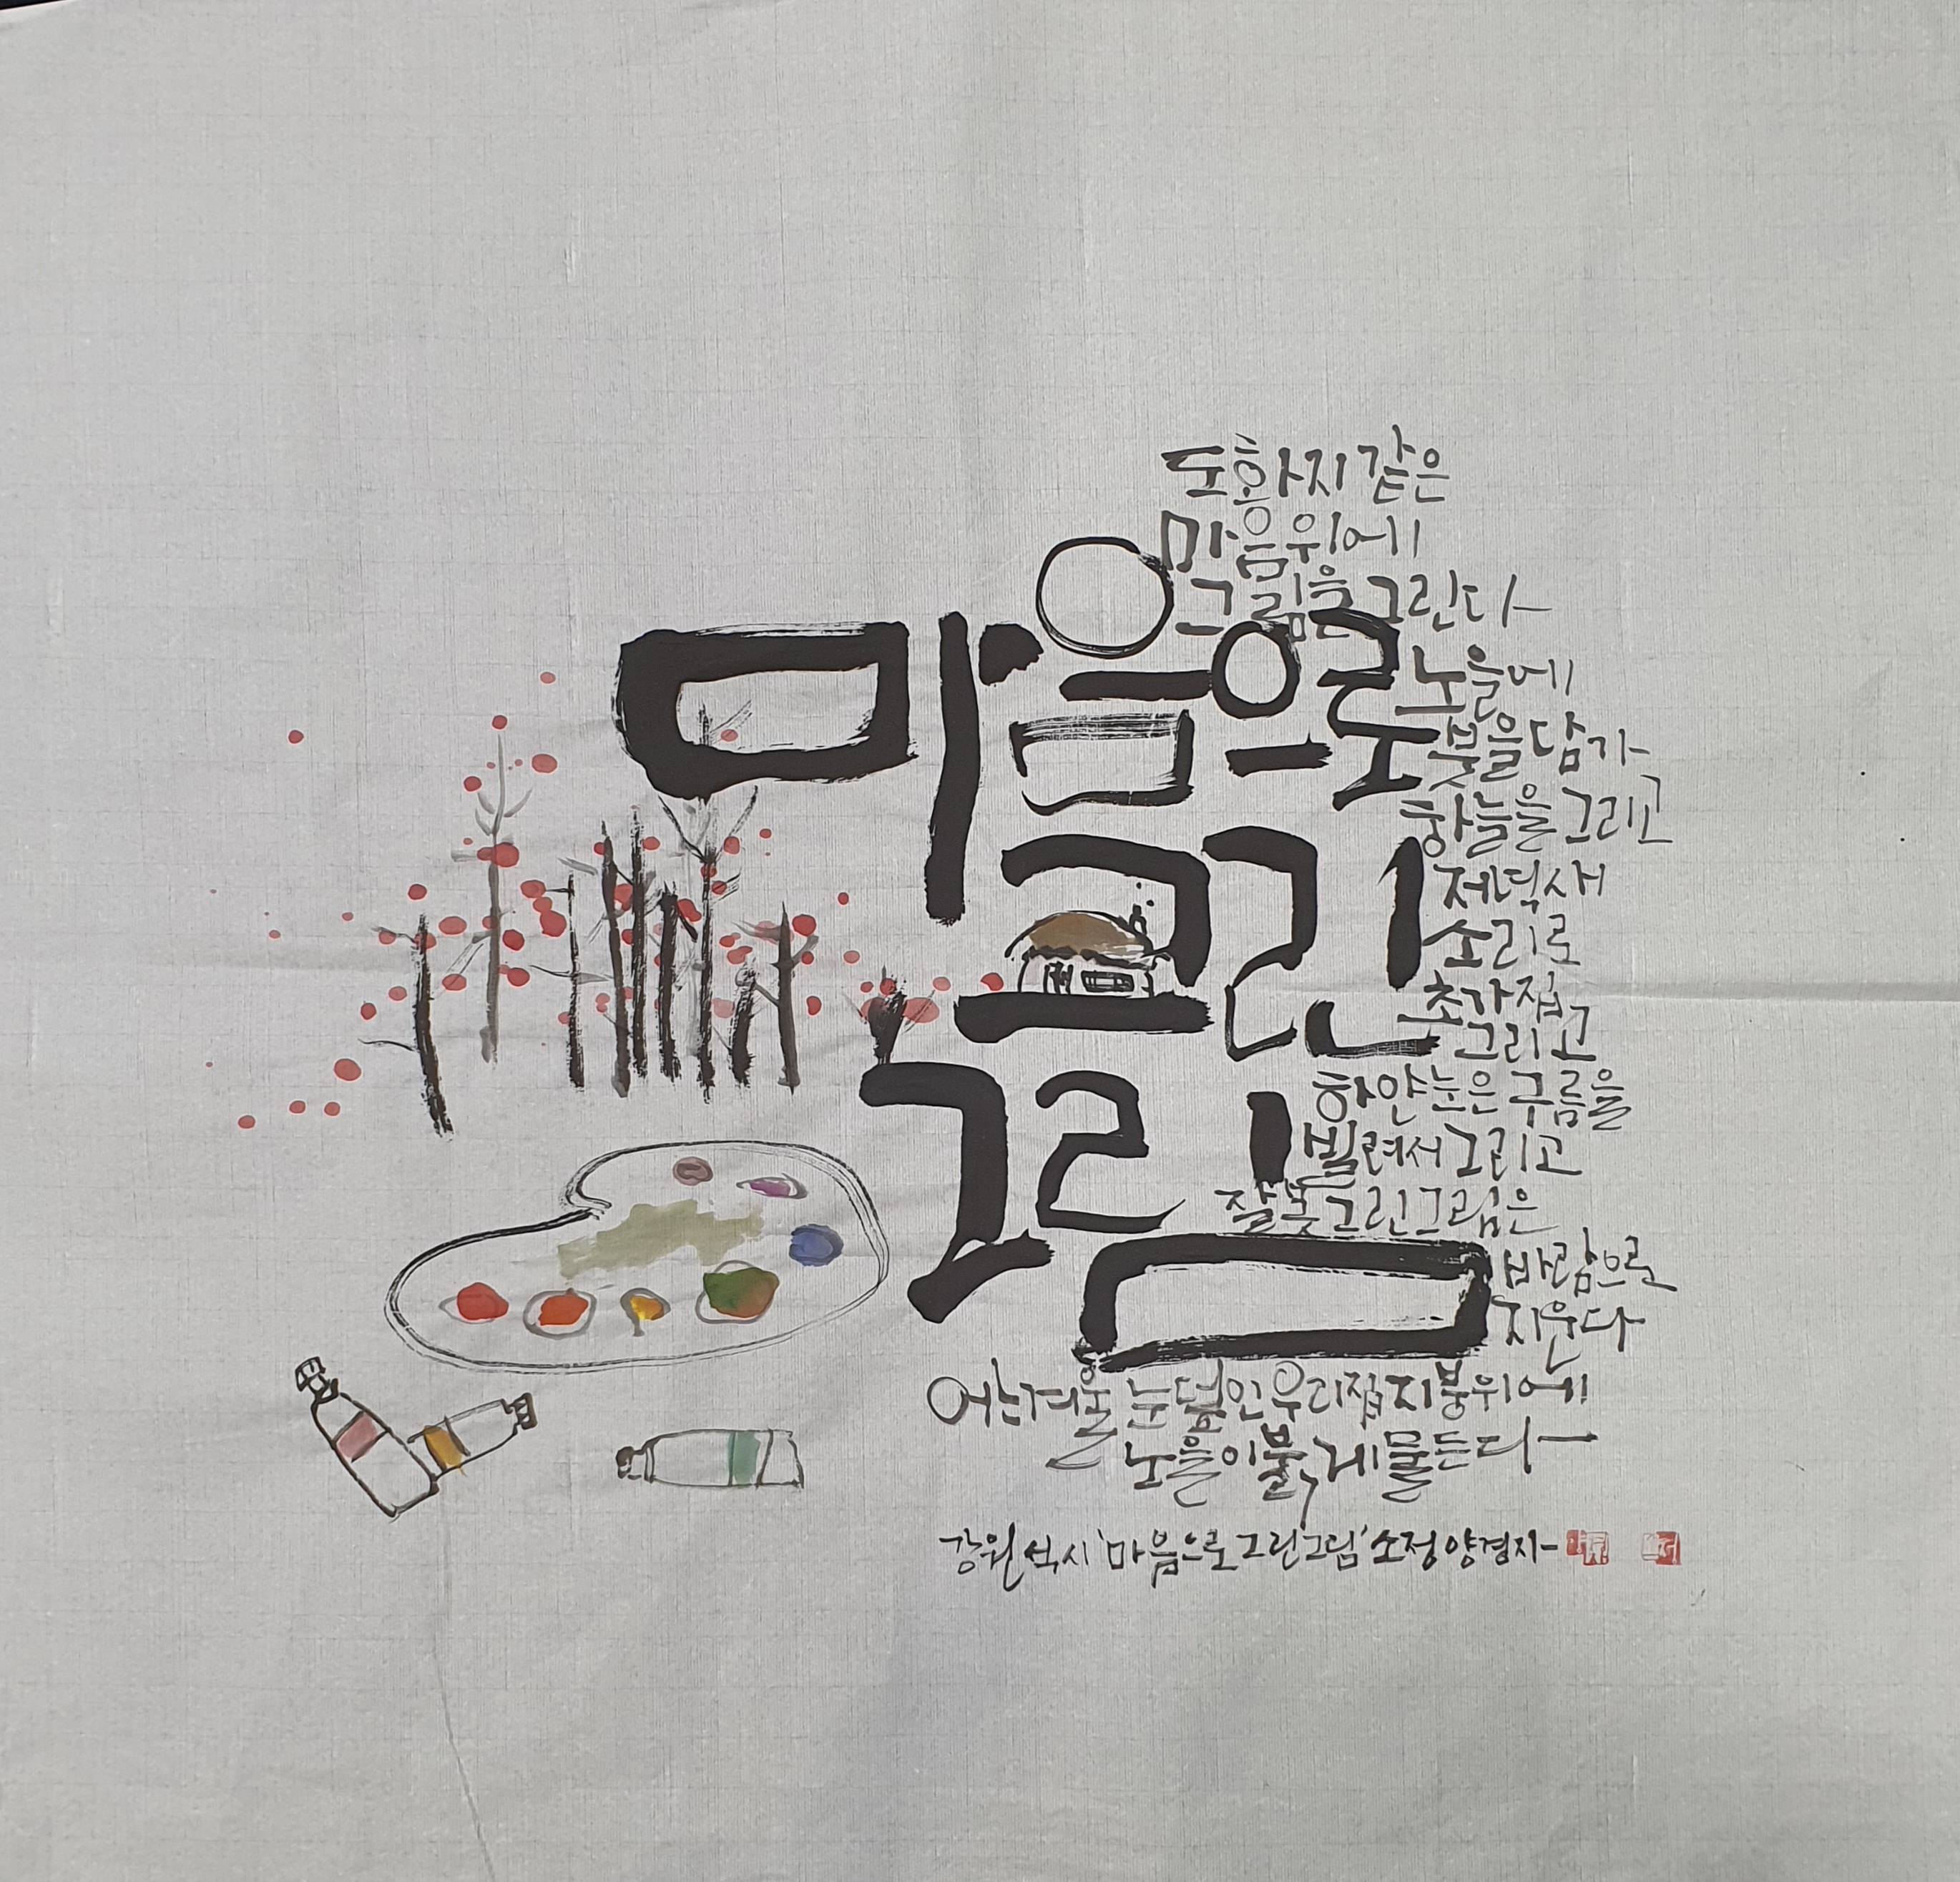 마음으로
그린
그림
도화지 같은
마음위에
그림을 그린다
노을에
붓을 담가
하늘을 그리고
저녁새
소리로
초가집
그리고
하얀눈은 구름을
빌려서 그리고
잘못 그린 그림은
바람으로
지운다
어느겨울 눈덮인 우리집 지붕위에
노을이 붉게 물든다
강원석 시 '마음으로 그린 그림' 소정 양경지